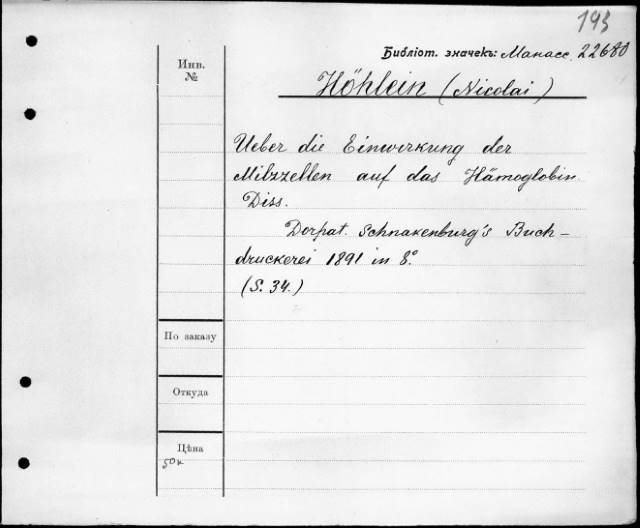 193
Библіот. значекъ: Манасс. 22680
Инв.
№
Höhlein (Nicolai)
Ueber die Einwirkung der
Milzzellen auf das Hämoglobin.
Diss.
Dorpat. Schnakenburg's Buch-
druckerei 1891 in 8°.
(S. 34.)
По заказу
Откуда
Цѣна
50к